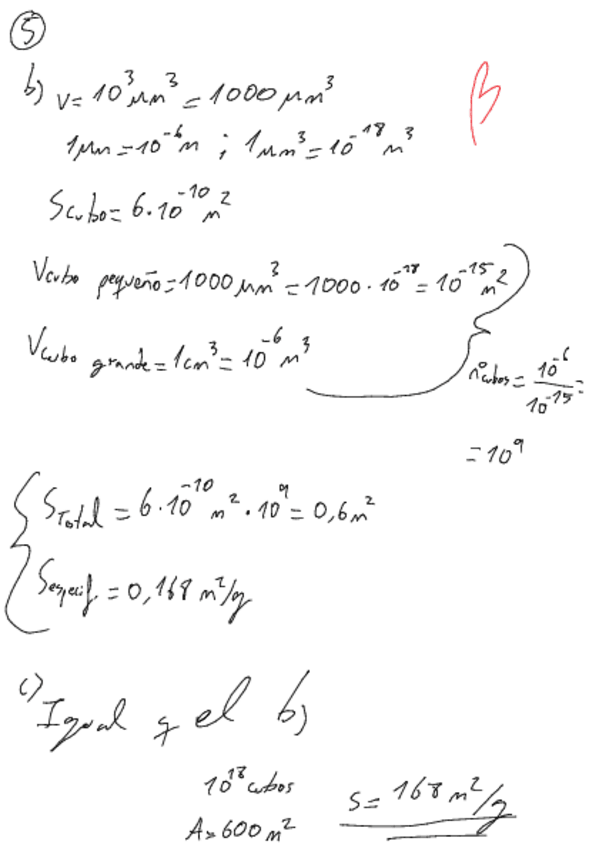 5
b) V = 10³ μm³ = 1000 μm³
β
1μm = 10⁻⁶ m ; 1μm³ = 10⁻¹⁸ m³
Scubo = 6·10⁻¹⁰ m²
Vcubo pequeño = 1000 μm³ = 1000 · 10⁻¹⁸ = 10⁻¹⁵ m²
Vcubo grande = 1cm³ = 10⁻⁶ m³
nºcubos = 10⁻⁶ / 10⁻¹⁵ =
= 10⁹
STotal = 6·10⁻¹⁰ m² · 10⁹ = 0,6 m²
Sespecif. = 0,168 m²/g
c) Igual q el b)
10¹⁸ cubos
S = 168 m²/g
A = 600 m²